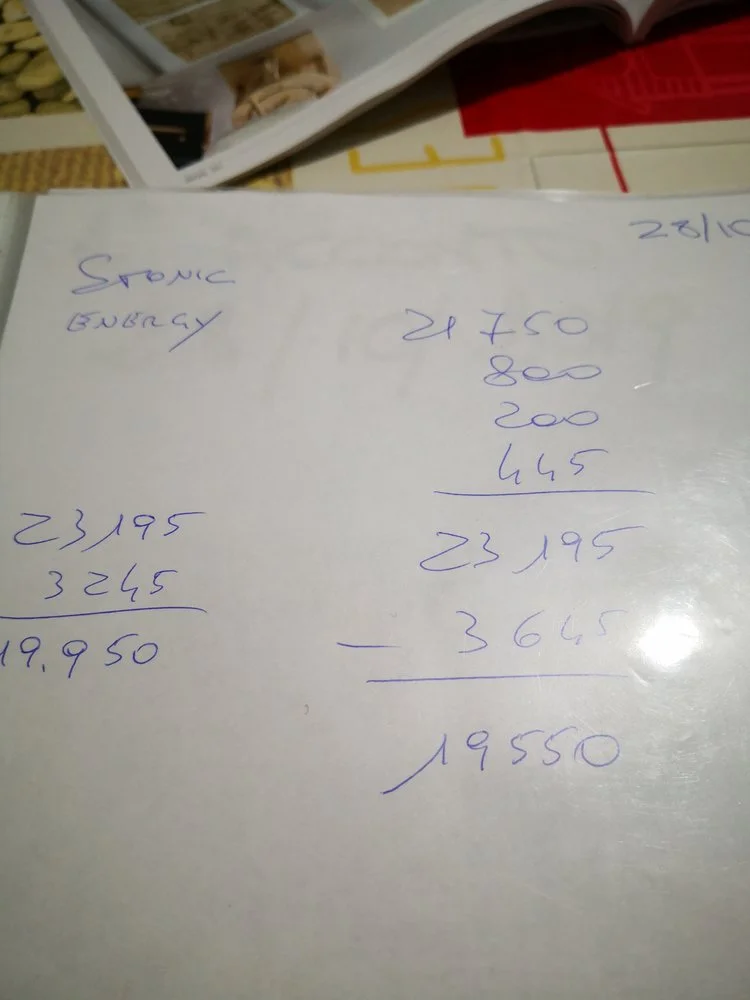 28/10
STONIC
ENERGY
21 750
800
200
445
23 195
- 3645
19550
23195
3245
19.950